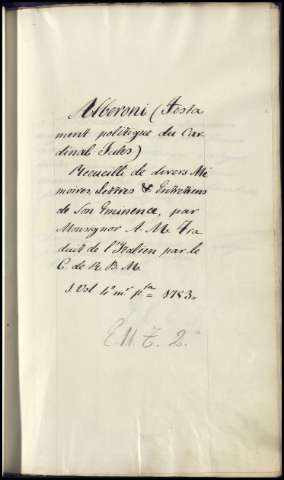 Alberoni (Testa
ment politique du Car
dinal Jules)
Recueille de divers Mé
moires, Lettres & Entretiens
de Son Eminence, par
Monsignor A. M. Tra
duit de l'Italien par le
C. de R. B. M.
1 Vol 4º mº pta = 1753.
E. U. T. 2.